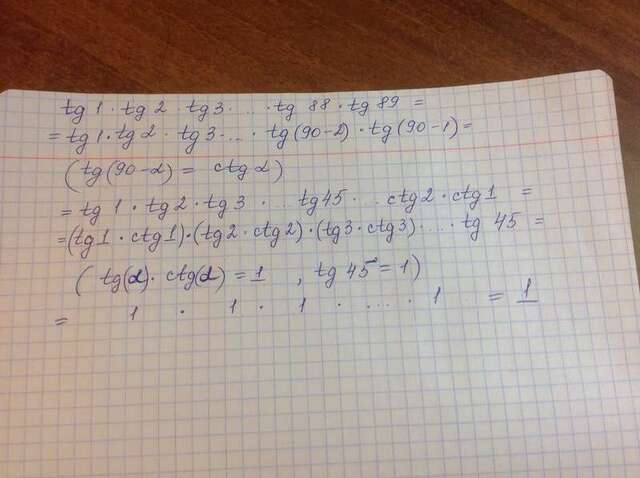 tg 1 · tg 2 · tg 3 · ... · tg 88 · tg 89 =
= tg 1 · tg 2 · tg 3 · ... · tg(90-2) · tg(90-1) =
(tg(90-α) = ctg α)
= tg 1 · tg 2 · tg 3 · .. tg 45 · .. ctg 2 · ctg 1 =
= (tg 1 · ctg 1) · (tg 2 · ctg 2) · (tg 3 · ctg 3) · .... · tg 45 =
( tg(α) · ctg(α) = 1 , tg 45 = 1 )
= 1 · 1 · 1 · .... · 1 = 1